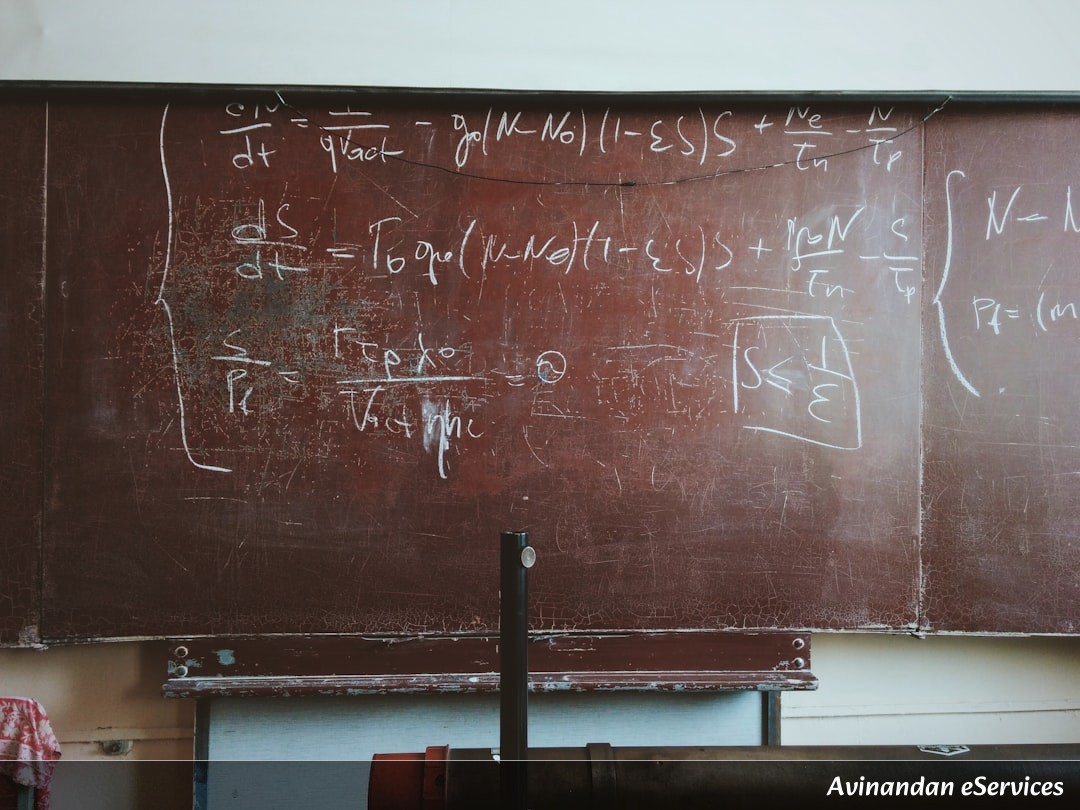 dN/dt = I/qVact - g₀(N-N₀)(1-εS)S + Ne/τn - N/τp
dS/dt = Γ₀g₀(N-N₀)(1-εS)S + N/τn - S/τp
S/Pf = Γτpλ₀/Vact ηhc = ②
S ≤ 1/ε
N - N
Pf = (m
Avinandan eServices